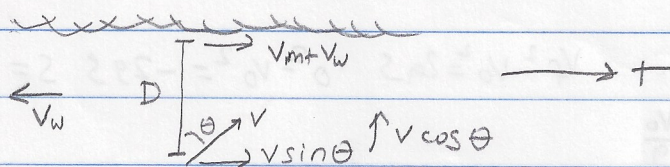 Vm+Vw
+
Vw
D
θ
V
V sinθ
V cosθ